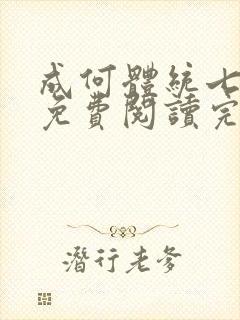 成何體統七
免費閱讀完
潛行老爹